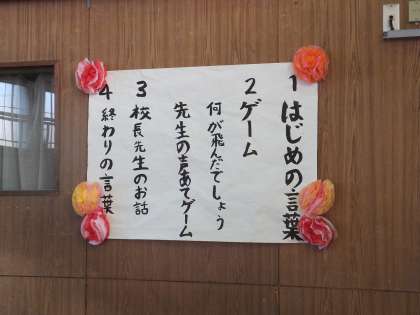 1 はじめの言葉
2 ゲーム
何が飛んだでしょう
先生の声あてゲーム
3 校長先生のお話
4 終わりの言葉